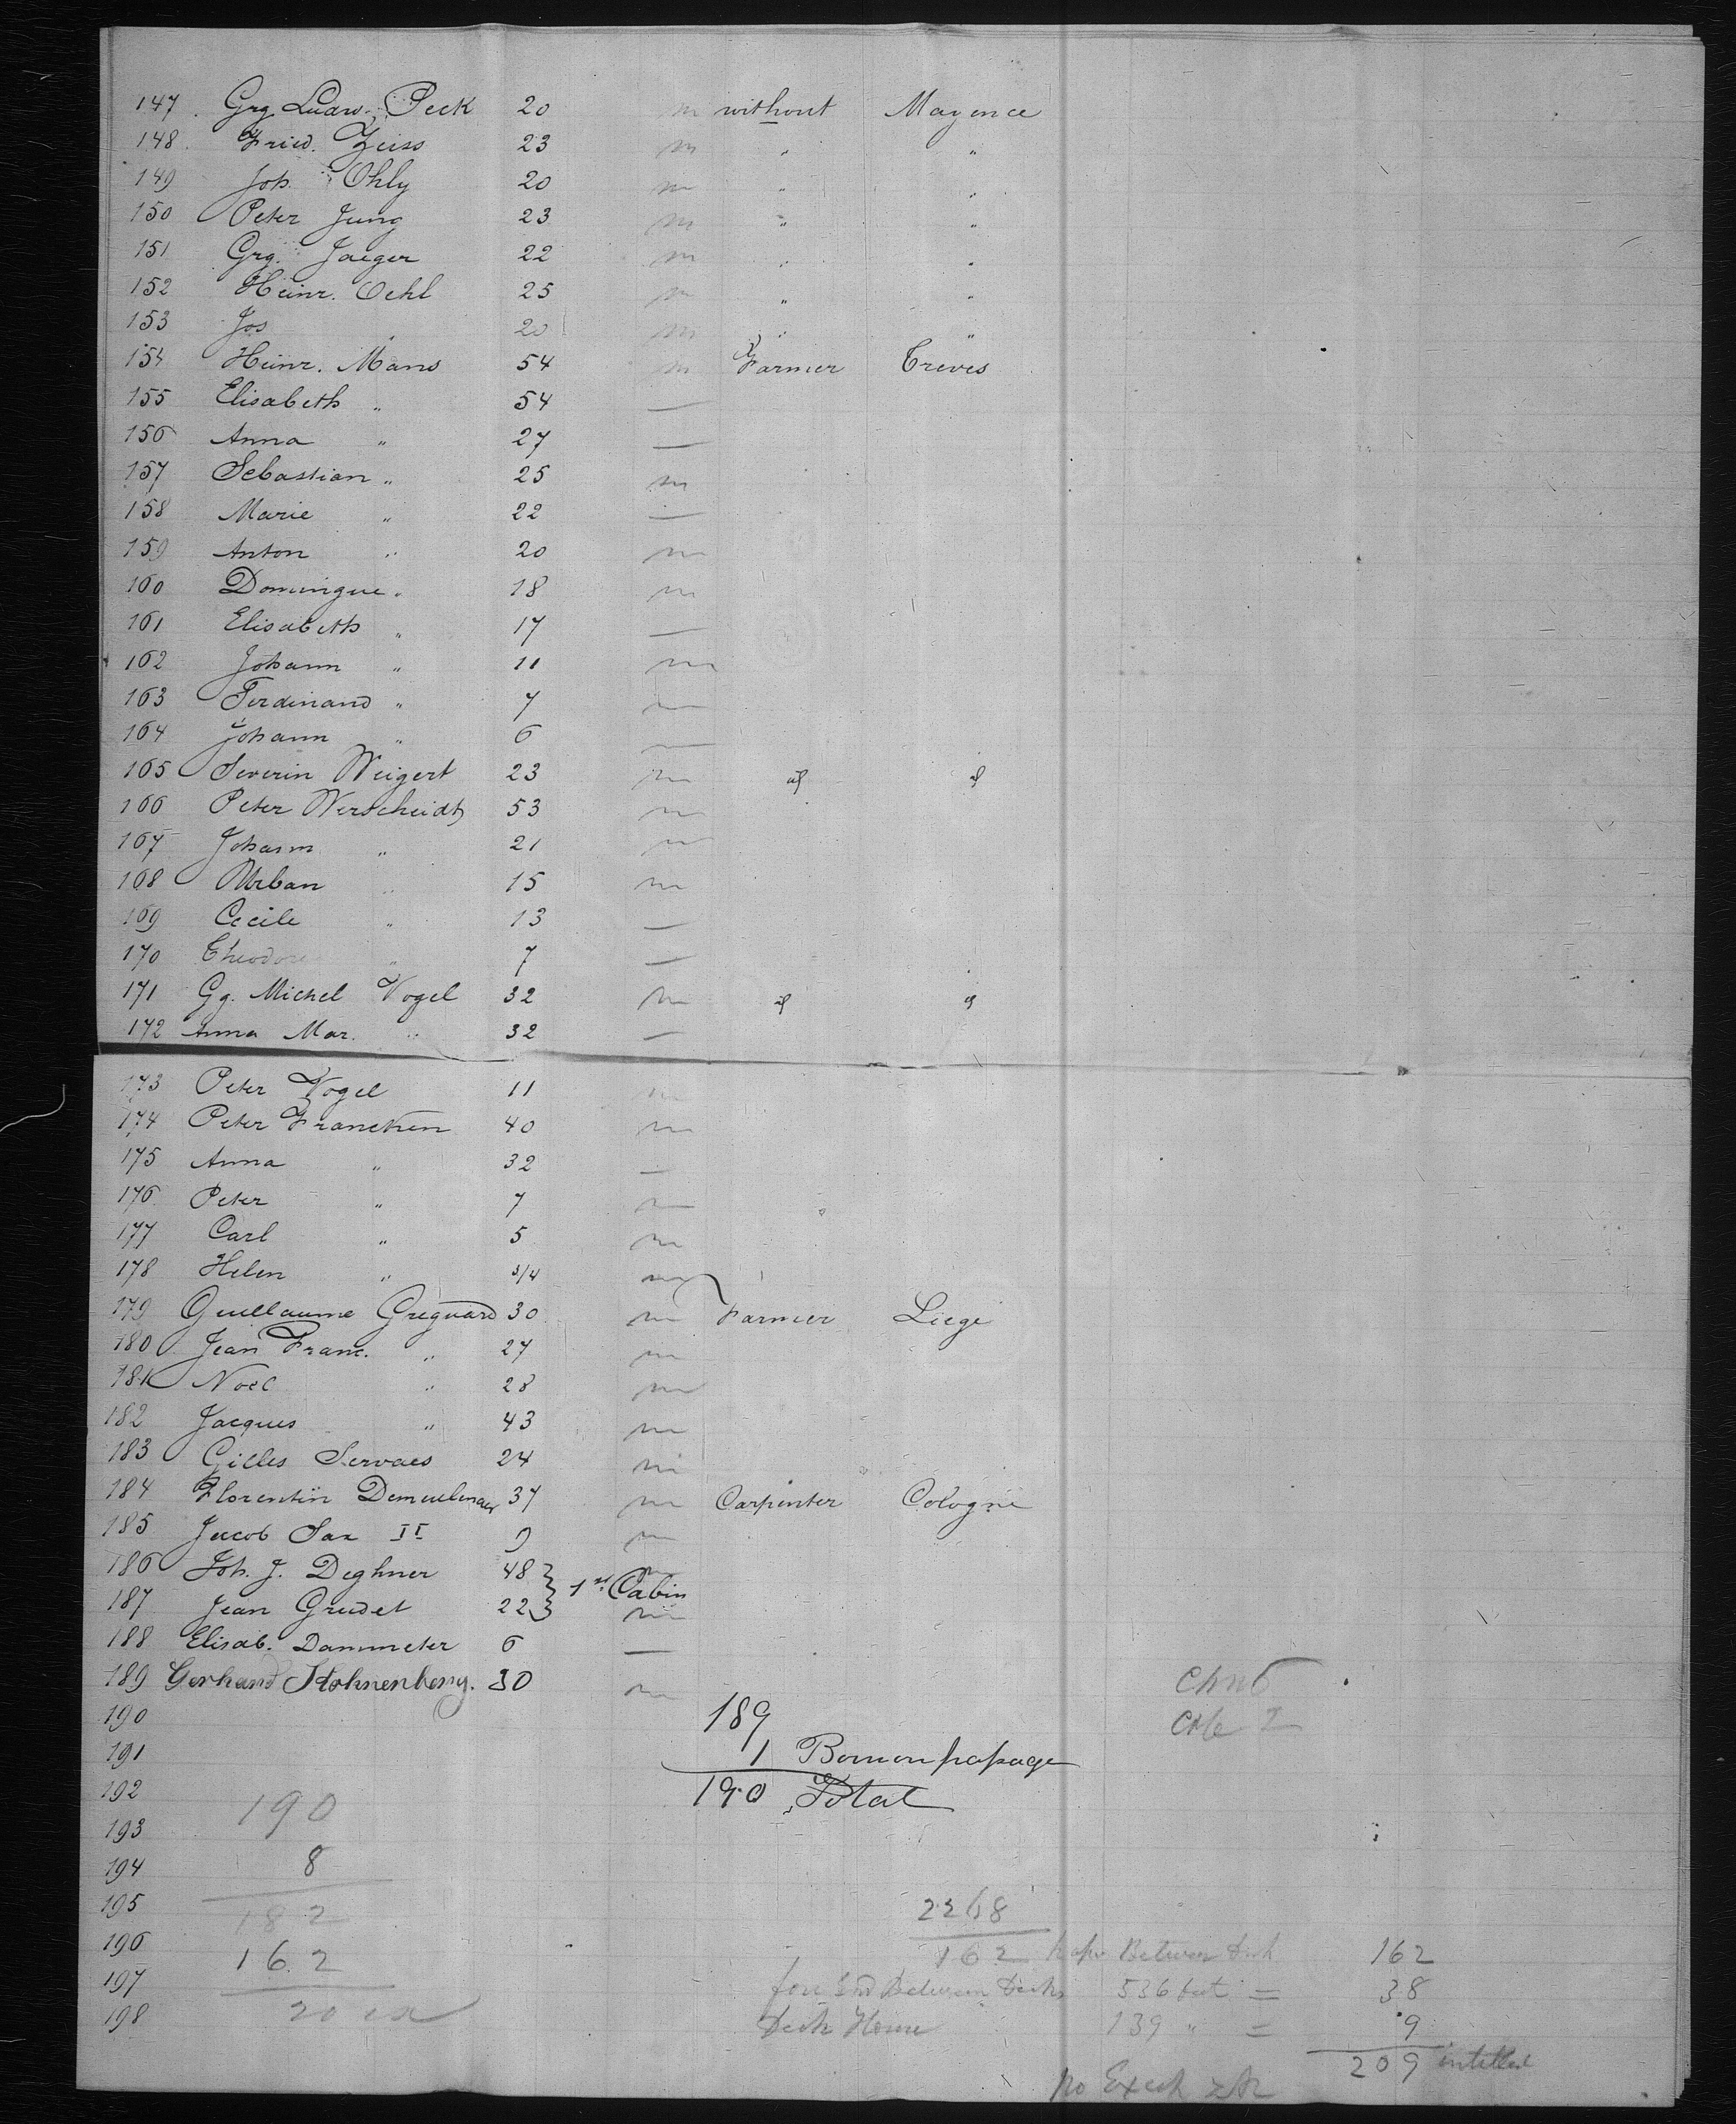 147 Grg Ludw. Peck 20 m without Mayence
148 Fried. Zeiss 23 m " "
149 Joh. Ohly 20 m " "
150 Peter Jung 23 m " "
151 Grg. Jaeger 22 m " "
152 Heinr. Oehl 25 m " "
153 Jos " 20 m " "
154 Heinr. Mans 54 m Farmer Treves
155 Elisabeth " 54 —
156 Anna " 27 —
157 Sebastian " 25 m
158 Marie " 22 —
159 Anton " 20 m
160 Domingue " 18 m
161 Elisabeth " 17 —
162 Johann " 11 m
163 Ferdinand " 7 m
164 Johann " 6 m
165 Severin Weigert 23 m
166 Peter Werscheidt 53 m
167 Johann " 21 m
168 Urban " 15 m
169 Cecile " 13 —
170 Theodore " 7 —
171 Gg. Michel Vogel 32 m
172 Anna Mar. " 32 —
173 Peter Vogel 11 m
174 Peter Francken 40 m
175 Anna " 32 —
176 Peter " 7 m
177 Carl " 5 m
178 Helen " 3/4 m
179 Guillaume Greguard 30 m Farmer Liege
180 Jean Franc. " 27 m
181 Noel " 28 m
182 Jacques " 43 m
183 Gilles Servaes 24 m
184 Florentin 37 m Carpenter Cologne
185 Jacob Sax II 9 m
186 Joh. J. Deghner 48 m
1st Cabin
187 Jean Grudet 22 m
188 Elisab. Dammeter 6 —
189 Gerhard 30 m
190 189
191 1
192 190 Total
193 190
194 8
195 182 2268
196 162 162 Between Deck 162
197 Between Decks 536 feet = 38
198 20 Deck House 139 " = 9
209